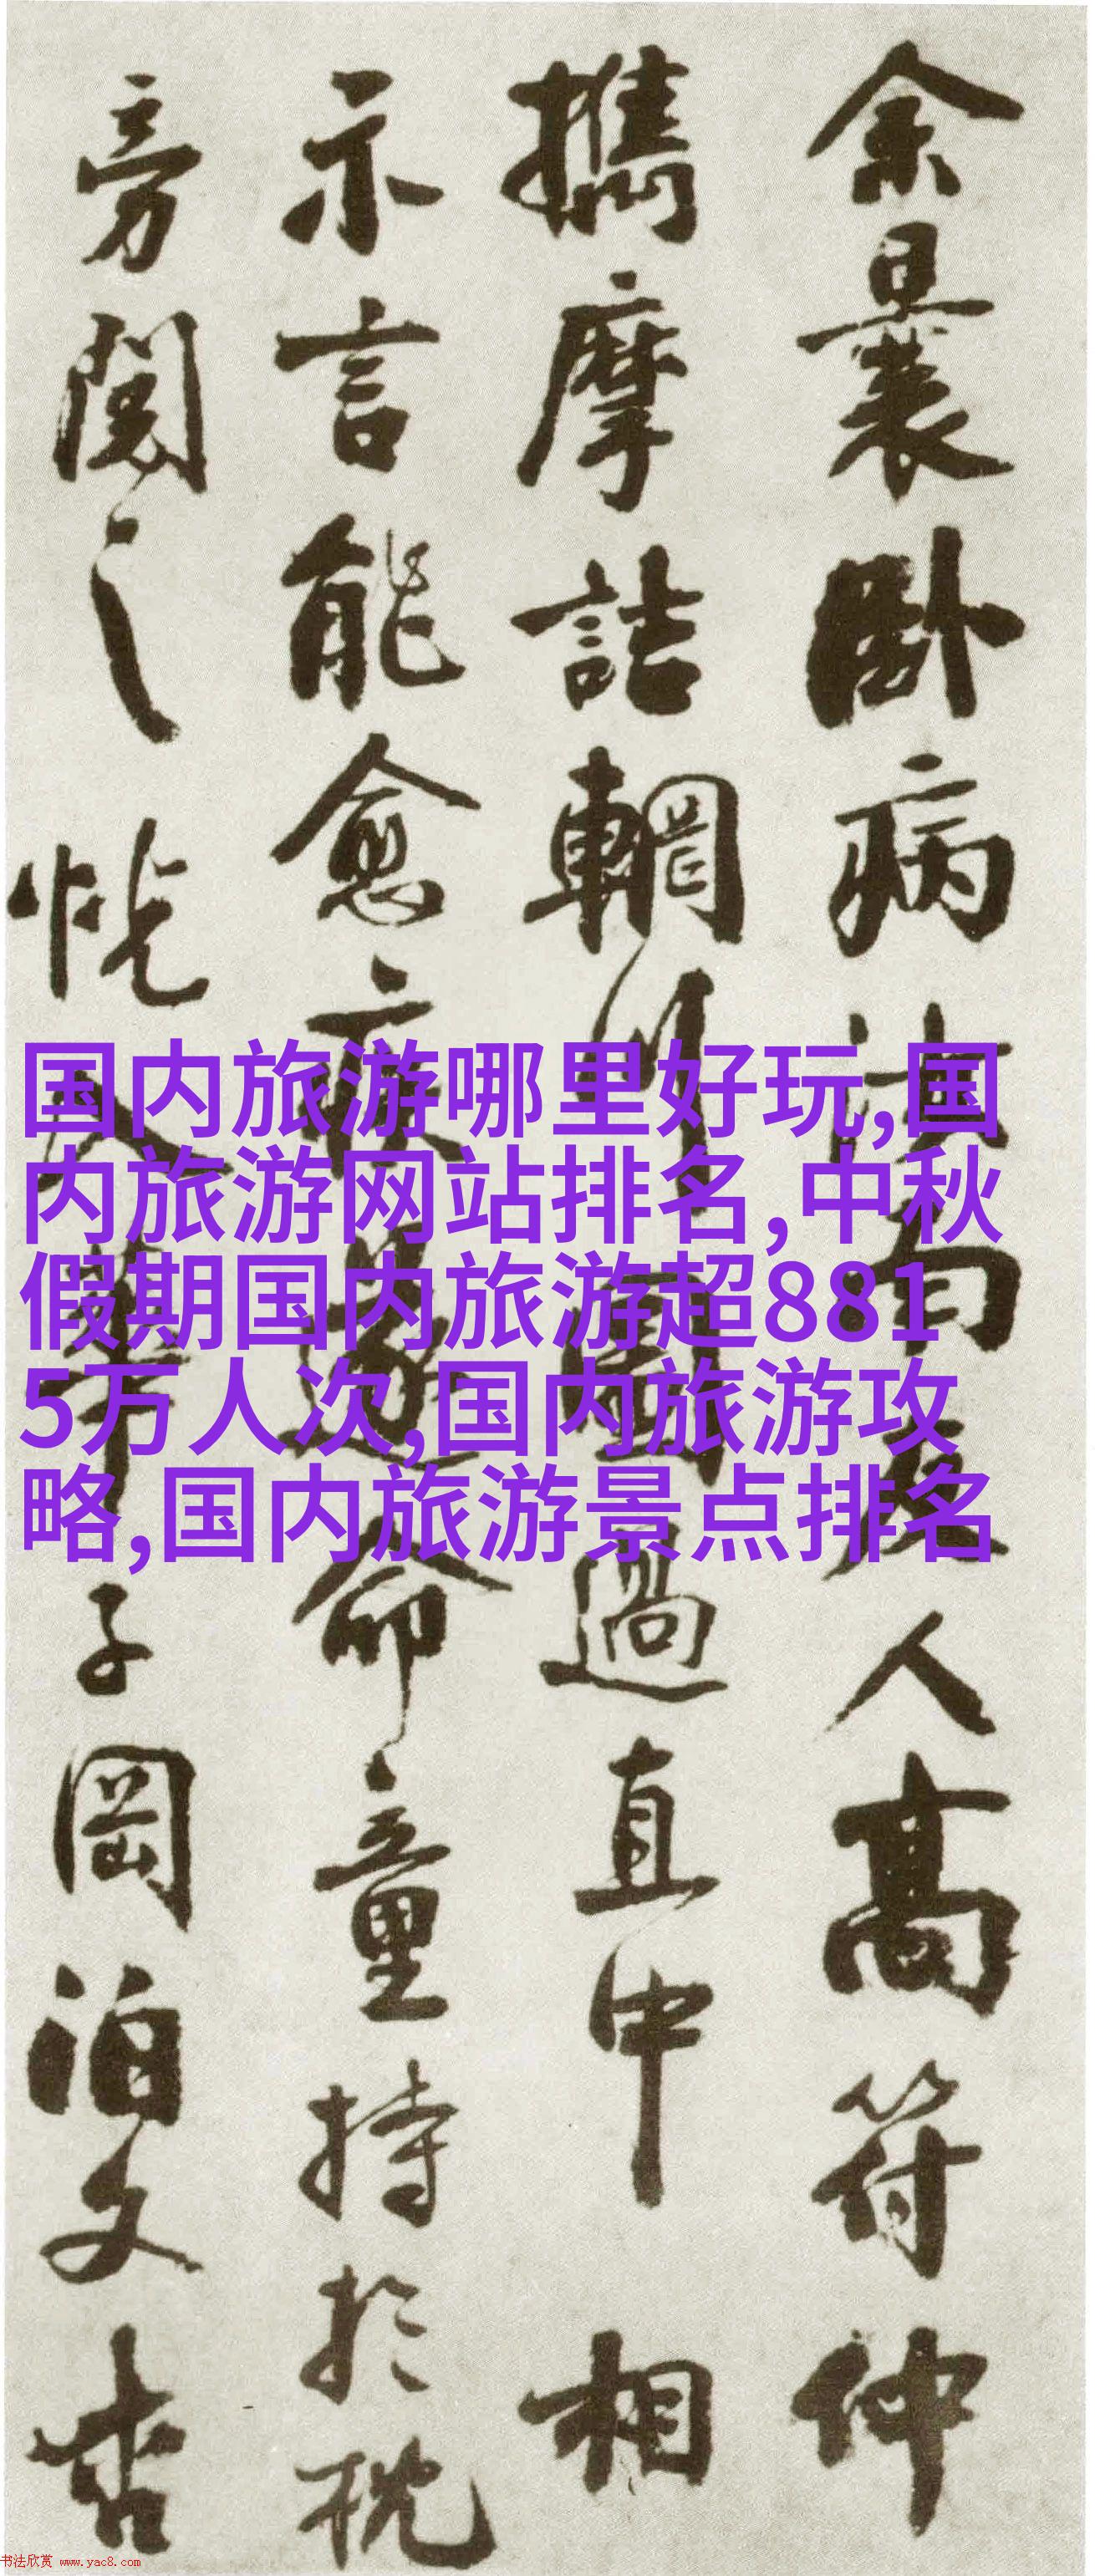 余曩臥病汝南友人高符仲
攜摩詰輞川圖過直中相
示言能愈疾遂命童持於枕
旁閱之恍入華子岡泊文杏
国内旅游哪里好玩,国
内旅游网站排名,中秋
假期国内旅游超881
5万人次,国内旅游攻
略,国内旅游景点排名
书法欣赏 www.yac8.com